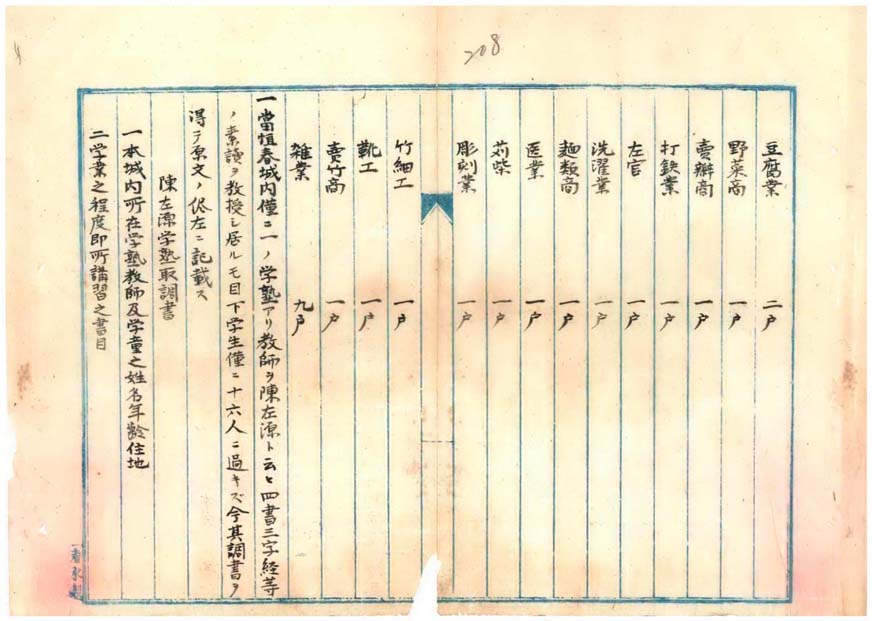 208
豆腐業 二戸
野菜商 一戸
賣辦商 一戸
打鉄業 一戸
左官 一戸
洗濯業 一戸
麺類商 一戸
医業 一戸
苅柴 一戸
彫刻業 一戸
竹細工 一戸
靴工 一戸
賣竹商 一戸
雑業 九戸
一當恒春城内僅ニ一ノ学塾アリ教師ヲ陳左源ト云ヒ四書三字経等
ノ素讀ヲ教授シ居ルモ目下学生僅ニ十六人ニ過キズ今其調書ヲ
得テ原文ノ侭左ニ記載ス
陳左源学塾取調書
一本城内所在学塾教師及学童之姓名年齢住地
二学業之程度即所講習之書目